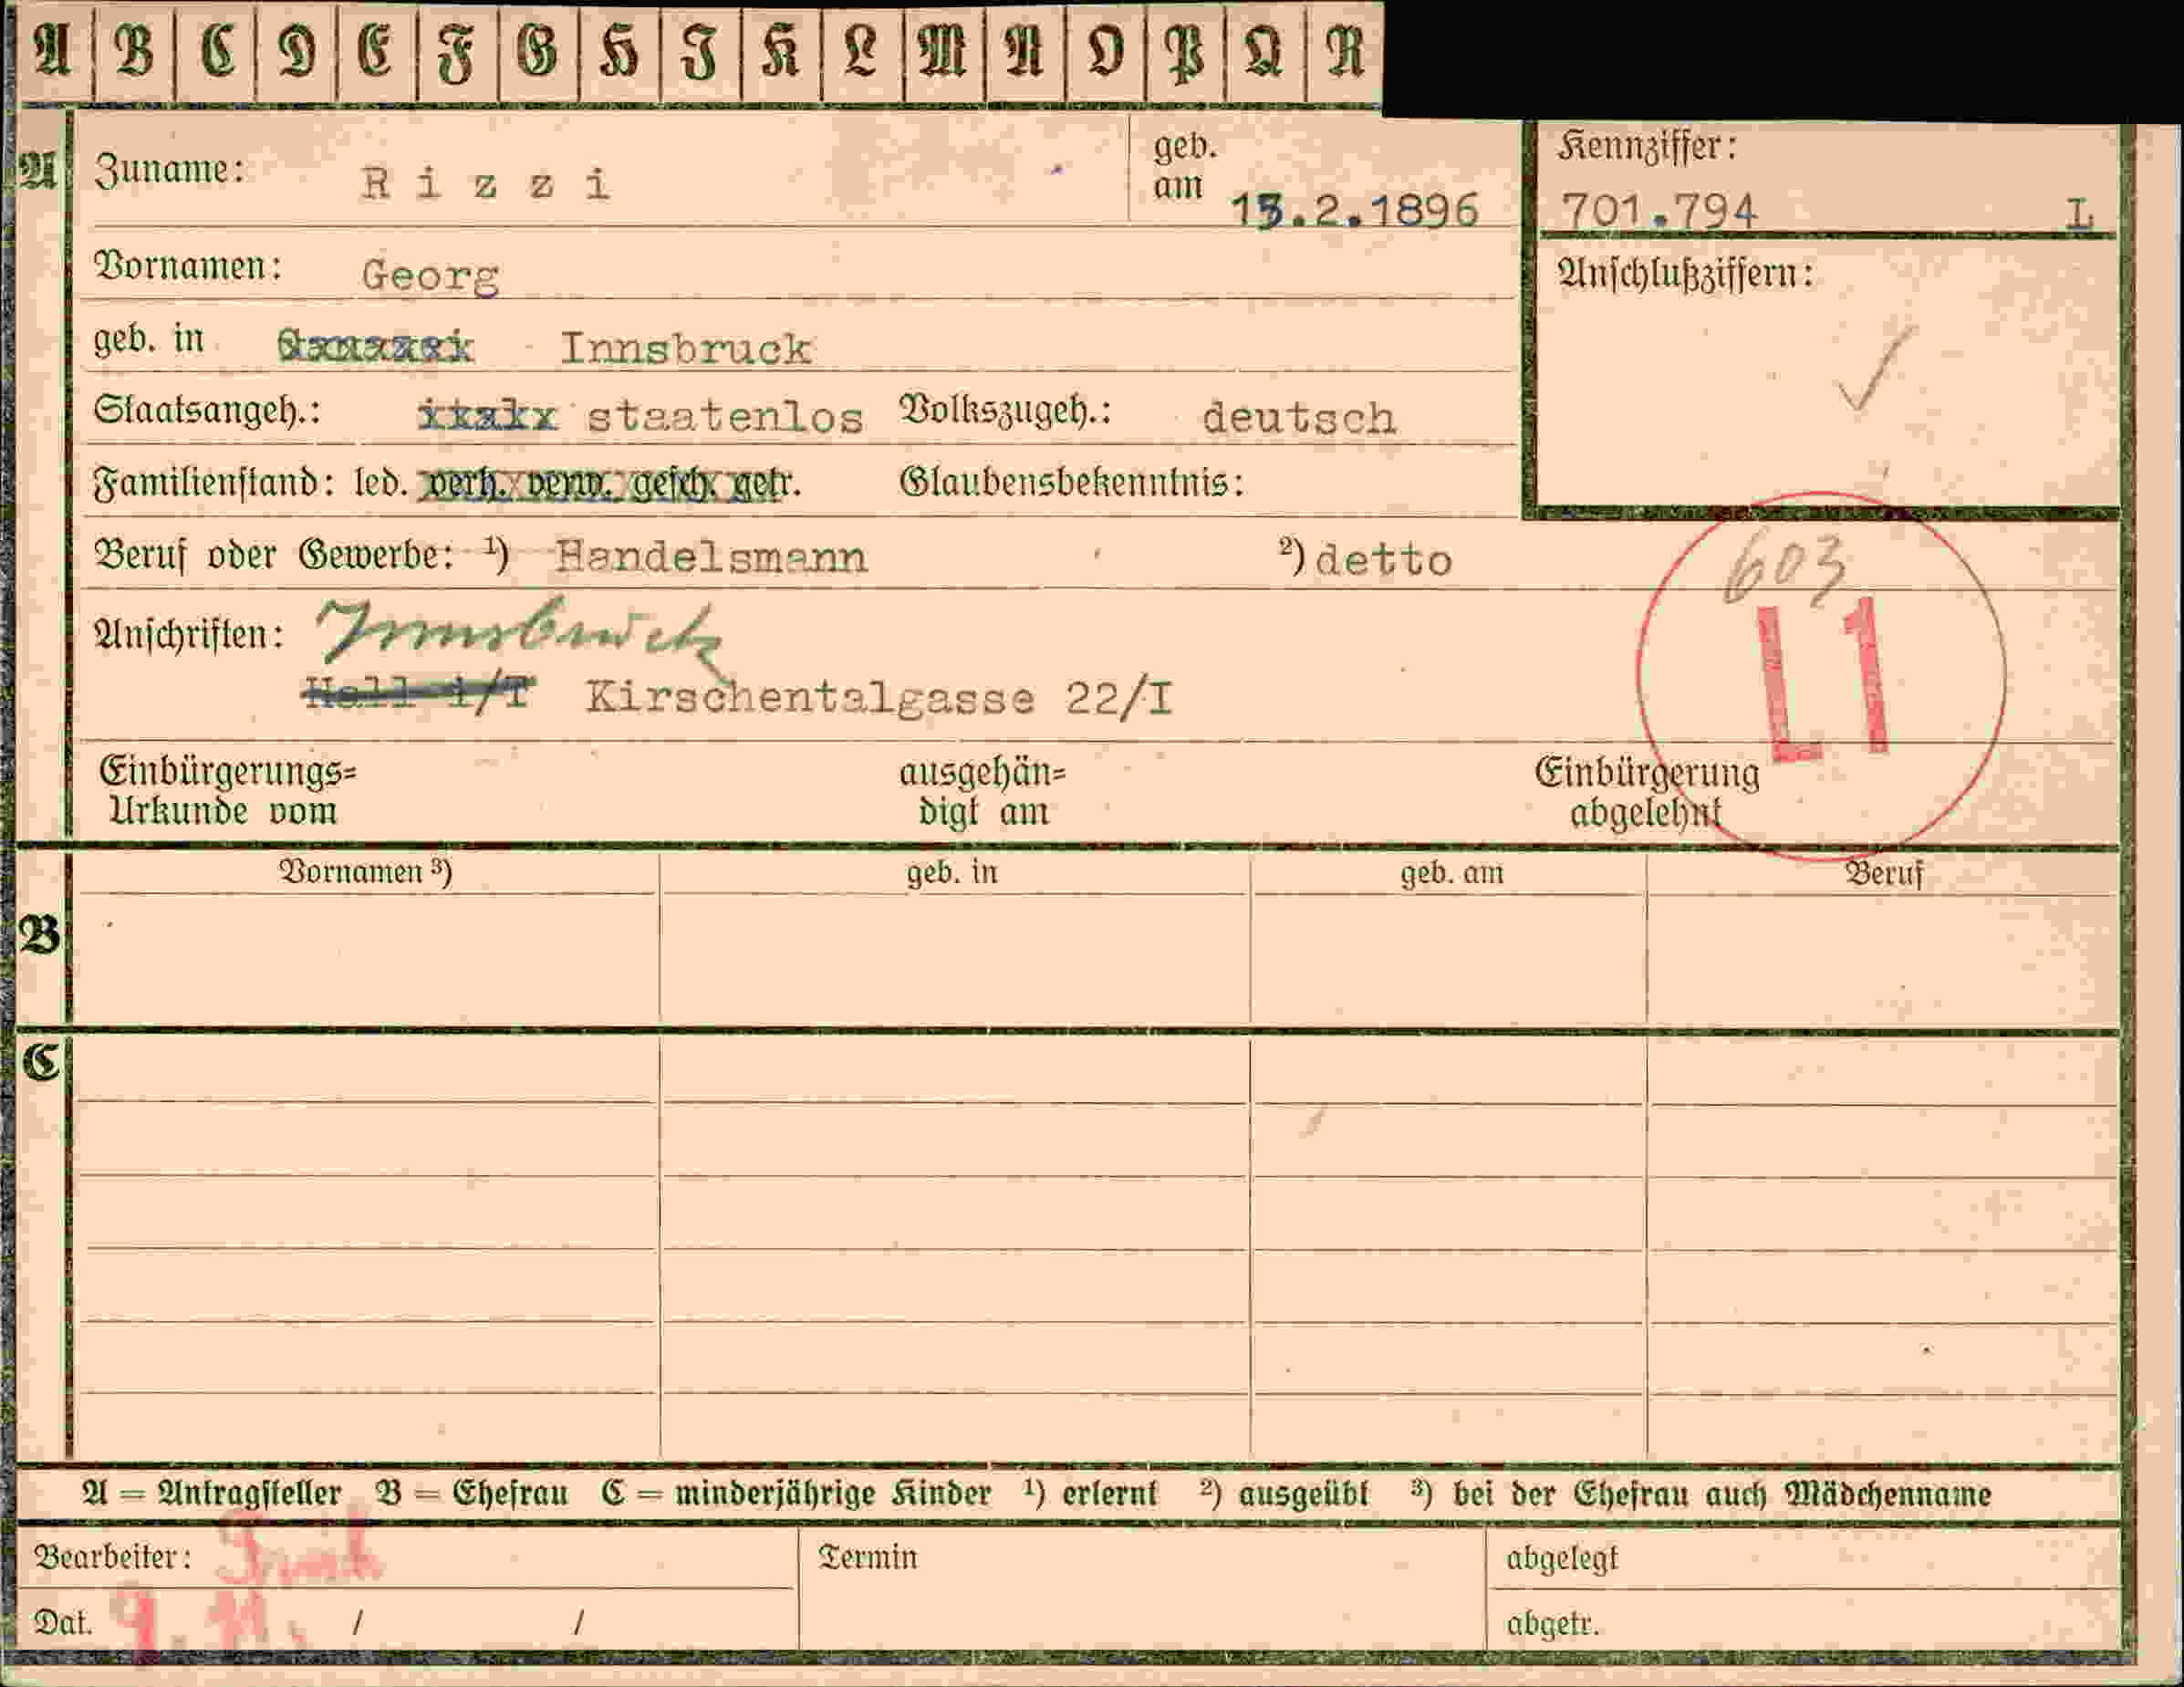 A B C D E F G H I K L M N O P Q R
A Zuname: Rizzi geb. am 13.2.1896 Kennziffer: 701.794 L
Vornamen: Georg Anschlußziffern:
geb. in Innsbruck
Staatsangeh.: staatenlos Volkszugeh.: deutsch
Familienstand: led. verh. verw. gesch. getr. Glaubensbekenntnis:
Beruf oder Gewerbe: ¹) Handelsmann ²) detto 603
Anschriften: Innsbruck L1
Hall i/T Kirschentalgasse 22/I
Einbürgerungs= ausgehän= Einbürgerung
Urkunde vom digt am abgelehnt
Vornamen ³) geb. in geb. am Beruf
B
C
A = Antragsteller B = Ehefrau C = minderjährige Kinder ¹) erlernt ²) ausgeübt ³) bei der Ehefrau auch Mädchenname
Bearbeiter: Termin abgelegt
Dat. 9. 11. / / abgetr.